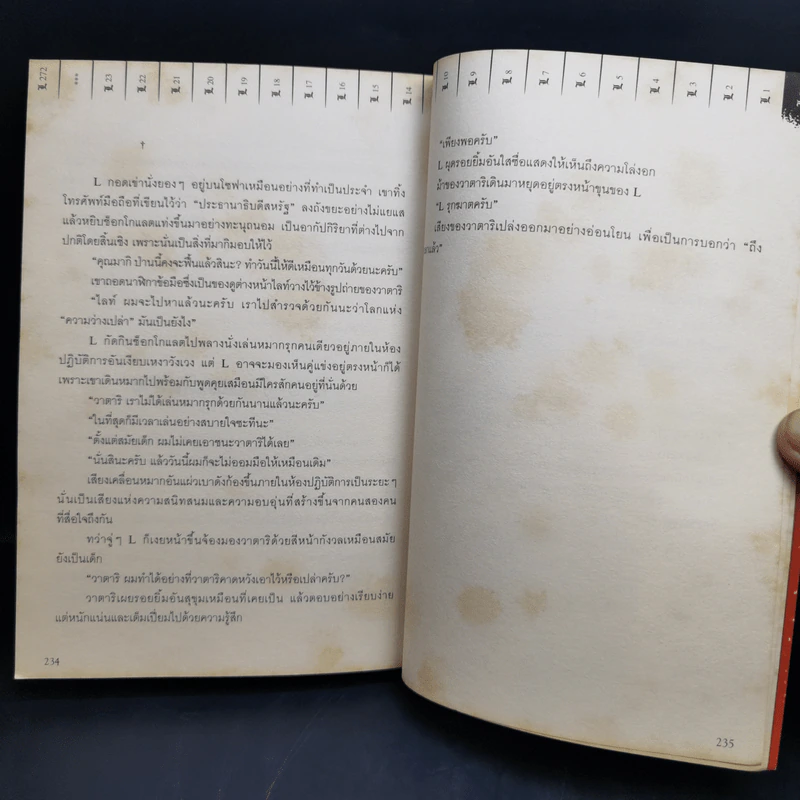 L 272
***
L 23
L 22
L 21
L 20
L 19
L 18
L 17
L 16
L 15
L 14
†
L กอดเข่านั่งยองๆ อยู่บนโซฟาเหมือนอย่างที่ทำเป็นประจำ เขาทิ้ง
โทรศัพท์มือถือที่เขียนไว้ว่า “ประธานาธิบดีสหรัฐ” ลงถังขยะอย่างไม่แยแส
แล้วหยิบช็อกโกแลตแท่งขึ้นมาอย่างทะนุถนอม เป็นอากัปกิริยาที่ต่างไปจาก
ปกติโดยสิ้นเชิง เพราะนั่นเป็นสิ่งที่มากิมอบให้ไว้
“คุณมากิ ป่านนี้คงจะฟื้นแล้วสินะ? ทำวันนี้ให้ดีเหมือนทุกวันด้วยนะครับ”
เขาถอดนาฬิกาข้อมือซึ่งเป็นของดูต่างหน้าไลท์วางไว้ข้างรูปถ่ายของวาตาริ
“ไลท์ ผมจะไปหาแล้วนะครับ เราไปสำรวจด้วยกันนะว่าโลกแห่ง
“ความว่างเปล่า” มันเป็นยังไง”
L กัดกินช็อกโกแลตไปพลางนั่งเล่นหมากรุกคนเดียวอยู่ภายในห้อง
ปฏิบัติการอันเงียบเหงาวังเวง แต่ L อาจจะมองเห็นคู่แข่งอยู่ตรงหน้าก็ได้
เพราะเขาเดินหมากไปพร้อมกับพูดคุยเสมือนมีใครสักคนอยู่ที่นั่นด้วย
“วาตาริ เราไม่ได้เล่นหมากรุกด้วยกันนานแล้วนะครับ”
“ในที่สุดก็มีเวลาเล่นอย่างสบายใจซะทีนะ”
“ตั้งแต่สมัยเด็ก ผมไม่เคยเอาชนะวาตาริได้เลย”
“นั่นสินะครับ แล้ววันนี้ผมก็จะไม่ออมมือให้เหมือนเดิม”
เสียงเคลื่อนหมากอันแผ่วเบาดังก้องขึ้นภายในห้องปฏิบัติการเป็นระยะๆ
นั่นเป็นเสียงแห่งความสนิทสนมและความอบอุ่นที่สร้างขึ้นจากคนสองคน
ที่สื่อใจถึงกัน
ทว่าจู่ๆ L ก็เงยหน้าขึ้นจ้องมองวาตาริด้วยสีหน้ากังวลเหมือนสมัย
ยังเป็นเด็ก
“วาตาริ ผมทำได้อย่างที่วาตาริคาดหวังเอาไว้หรือเปล่าครับ?”
วาตาริเผยรอยยิ้มอันสุขุมเหมือนที่เคยเป็น แล้วตอบอย่างเรียบง่าย
แต่หนักแน่นและเต็มเปี่ยมไปด้วยความรู้สึก
234
L 10
L 9
L 8
L 7
L 6
L 5
L 4
L 3
L 2
L 1
“เพียงพอครับ”
L ผุดรอยยิ้มอันใสซื่อแสดงให้เห็นถึงความโล่งอก
ม้าของวาตาริเดินมาหยุดอยู่ตรงหน้าขุนของ L
“L รุกฆาตครับ”
เสียงของวาตาริเปล่งออกมาอย่างอ่อนโยน เพื่อเป็นการบอกว่า “ถึง
แล้ว”
235